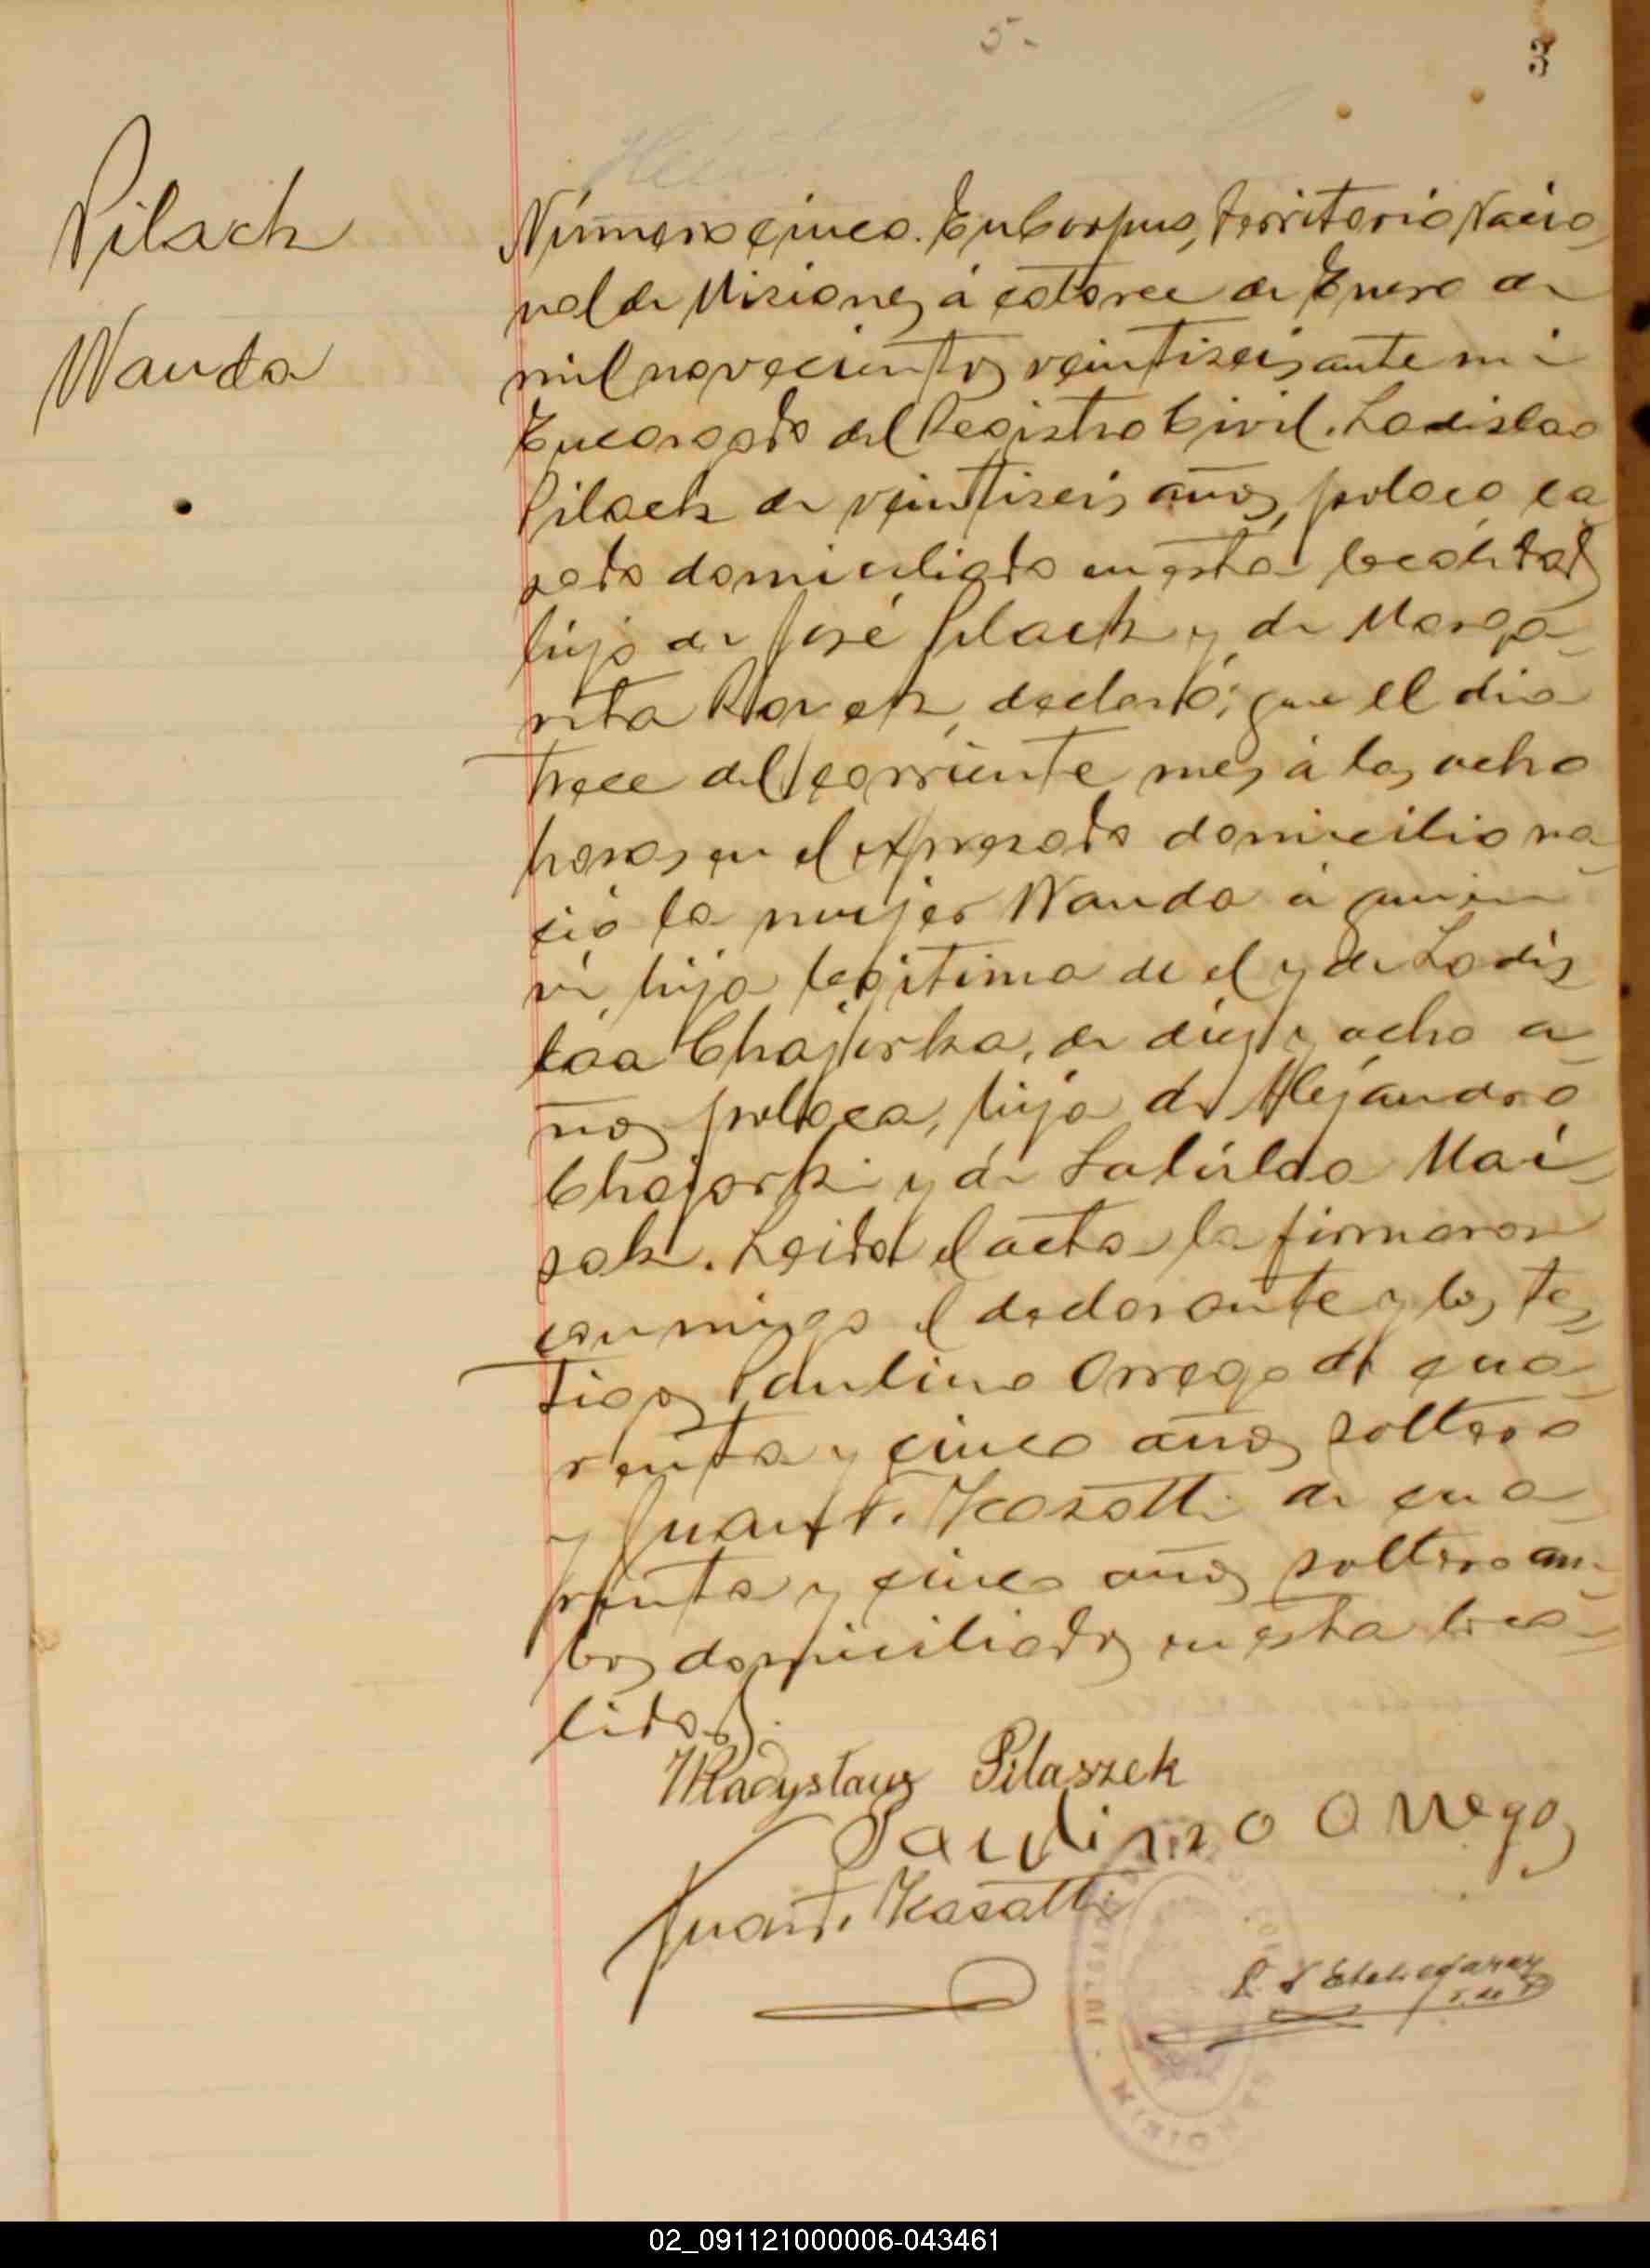 5-
3
Pilach
Wanda
Número cinco. En Corpus, Territorio Nacio
nal de Misiones, á catorce de Enero de
mil novecientos veintiseis, ante mi
Encargado del Registro Civil. Ladislao
Pilach de veintiseis años, polaco, ca
sado domiciliado en esta localidad
hijo de José Pilach y de Marga-
rita, declaró; que el dia
trece del corriente mes á las ocho
horas, en el expresado domicilio na-
ció la mujer Wanda á quien
vi, hija legitima de el y de Ladis
laa, de diez y ocho a-
ños polaca, hija de Alejandro
y de Mai-
sak. Leida el acta la firmaron
conmigo el declarante y los tes-
tigos Paulino Orrego de cua-
renta y cinco años soltero
y Juan F. Kasatti de cua-
renta y cinco años soltero am-
bos domiciliados en esta loca-
lidad.
Władysław Pilaszek
Paulino Orrego
Juan F. Kasatti
Etchegaray
J. de P.
MISIONES
02_091121000006-043461